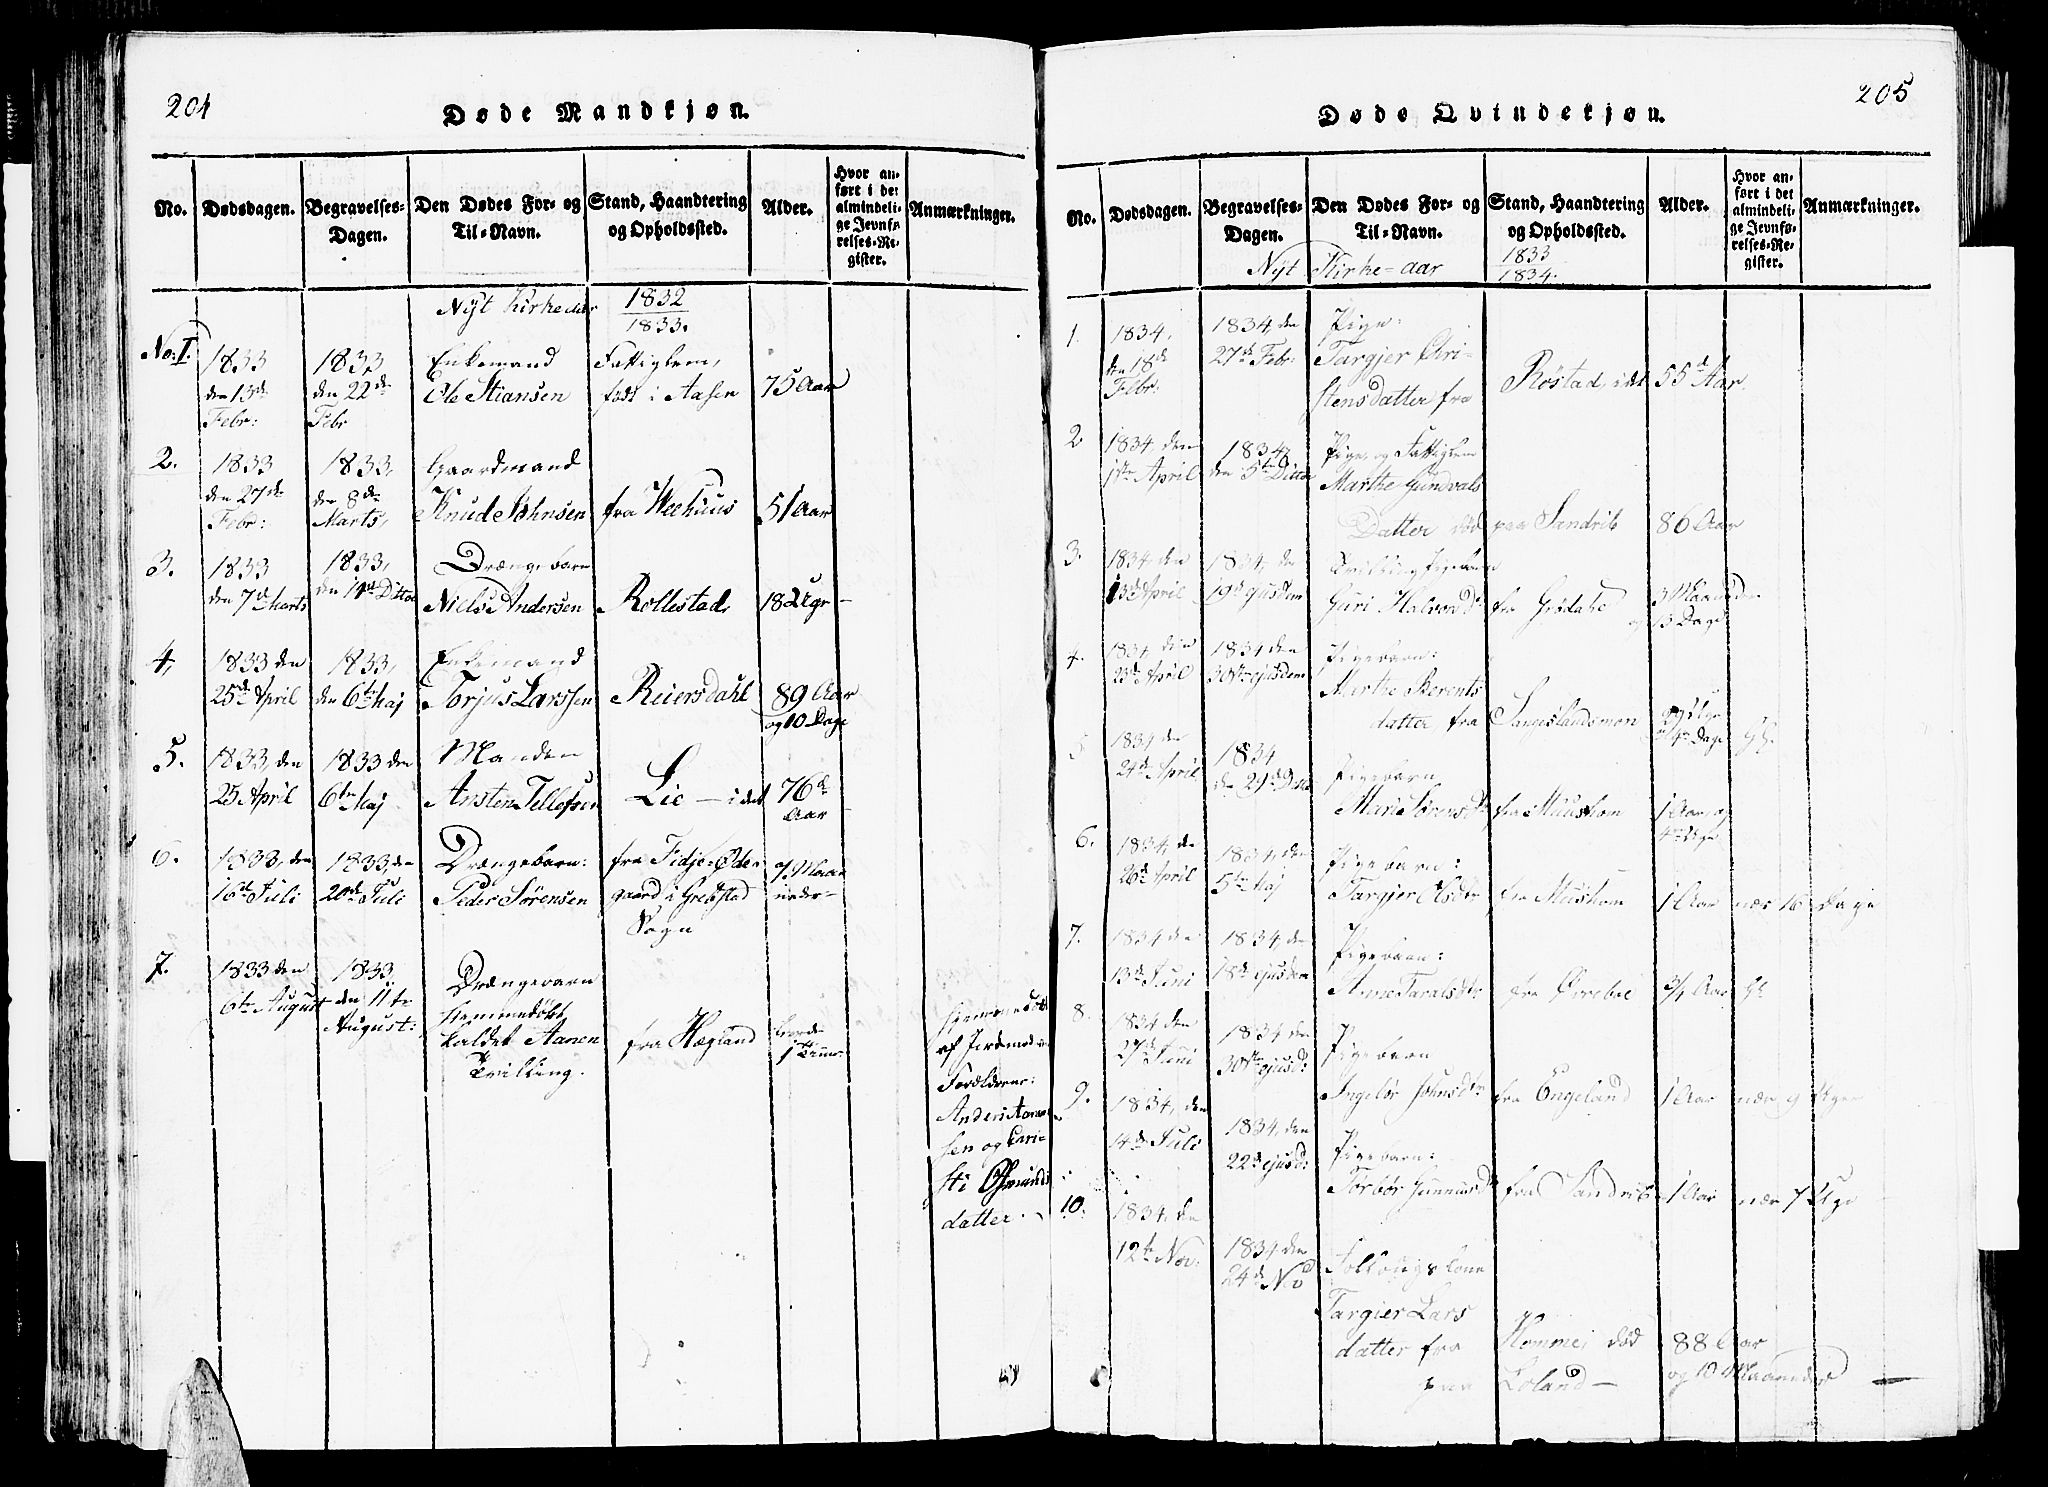 204
Døde Mandkjøn.
No.
Dødsdagen.
Begravelses-
Dagen.
Den Dødes For- og
Til-Navn.
Stand, Haandtering
og Opholdssted.
Alder.
Hvor an-
ført i det
almindeli-
ge Jevnfø-
relses-Re-
gister.
Anmærkninger.
Nyt Kirkeaar 1832
1833.
No: 1.
1833
den 13de
Febr:
1833
den 22de
Febr
Enkemand
Ole Stiansen
Fattiglem,
født i Aasen
75 Aar
2.
1833
den 27de
Febr:
1833,
den 8de
Marts,
Gaardmand
Knud Johnsen
fra Weehuus
51 Aar
3.
1833
den 7de Marts
1833,
den 14de Ditto
Drængebarn
Niels Andersen
Røllestad,
18 Uger
4,
1833 den
25de April
1833,
den 6te Maj
Enkemand
Torjus Larssen
Reiersdahl
89 Aar
og 10 Dage
5.
1833, den
25 April
1833 den
6te Maj
Manden
Ansten Tellefsen
Lie - i det
76de
Aar
6.
1833, den
16de Juli
1833, den
20de Juli
Drængebarn:
Peder Sørensen
fra Fidje-Øde-
gaard i Greibstad
Sogn
9 Maa-
neder-
7.
1833 den
6te August
1833,
den 11te
August:
Drængebarn
hjemmedøbt
kaldet Aanen
Tvilling.
fra Hægland
levede
1 Time
hjemmedøbt
af Jordemod
Forældrene:
Anders Aanen-
sen og Kari-
sti Osmunds
datter.
205
Døde Qvindekjøn.
No.
Dødsdagen.
Begravelses-
Dagen.
Den Dødes For- og
Til-Navn.
Stand, Haandtering
og Opholdssted.
Alder.
Hvor an-
ført i det
almindeli-
ge Jevnfø-
relses-Re-
gister.
Anmærkninger.
Nyt Kirke-aar 1833
1834.
1.
1834,
den 18de
Febr:
1834, den
27de Febr:
Pige:
Targjer Chri-
stensdatter fra
Røstad, i det
55de Aar
2
1834, den
1ste April
1834,
den 5te Ditto
Pige og Fattiglem
Marthe Gundvals
Datter død
paa Sandrib
86 Aar
3.
1834, den
13de April
1834, den
19de ejusdem
Tvilling Pigebarn
Guri Halvordsd:
fra
3 Maaneder
og 13 Dage
4.
1834 den
23de April
1834 den
30te ejusdem
Pigebarn:
Marthe Berents
datter, fra
Langeslandsmon
Uge
Dage
5
1834 den
24de April
1834
den 29de Ditto
Pigebarn
Marie Sørensdtr
fra Muushom
1 Aar, og
4re Uger
6.
1834, de
26de April
1834, den
5te Maj
Pigebarn:
Targjer Olsdtr
fra Muushom
1 Aar nær 16 Dage
7.
1834 den
13de Juni
1834, den
18de ejusdem
Pigebarn:
Anne Taralsdtr
fra Øvrebøe
3/4 Aar
8.
1834 den
27de Juni
1834 den
30te ejusd:
Pigebarn
Ingebør Johnsdtr
fra Engeland
1 Aar nær 9 Uger
9.
1834, den
14de Juli
1834, den
22de ejusd:
Pigebarn:
Torbør Gunnuldsd
fra Sandrib
1 Aar nær 7 Uge
10.
1834, den
12te Nov:
1834 den
24de Nov
Follougskone
Targier Lars
datter fra
paa
Homme, død
Loland-
88 Aar
og 10 Maaneder